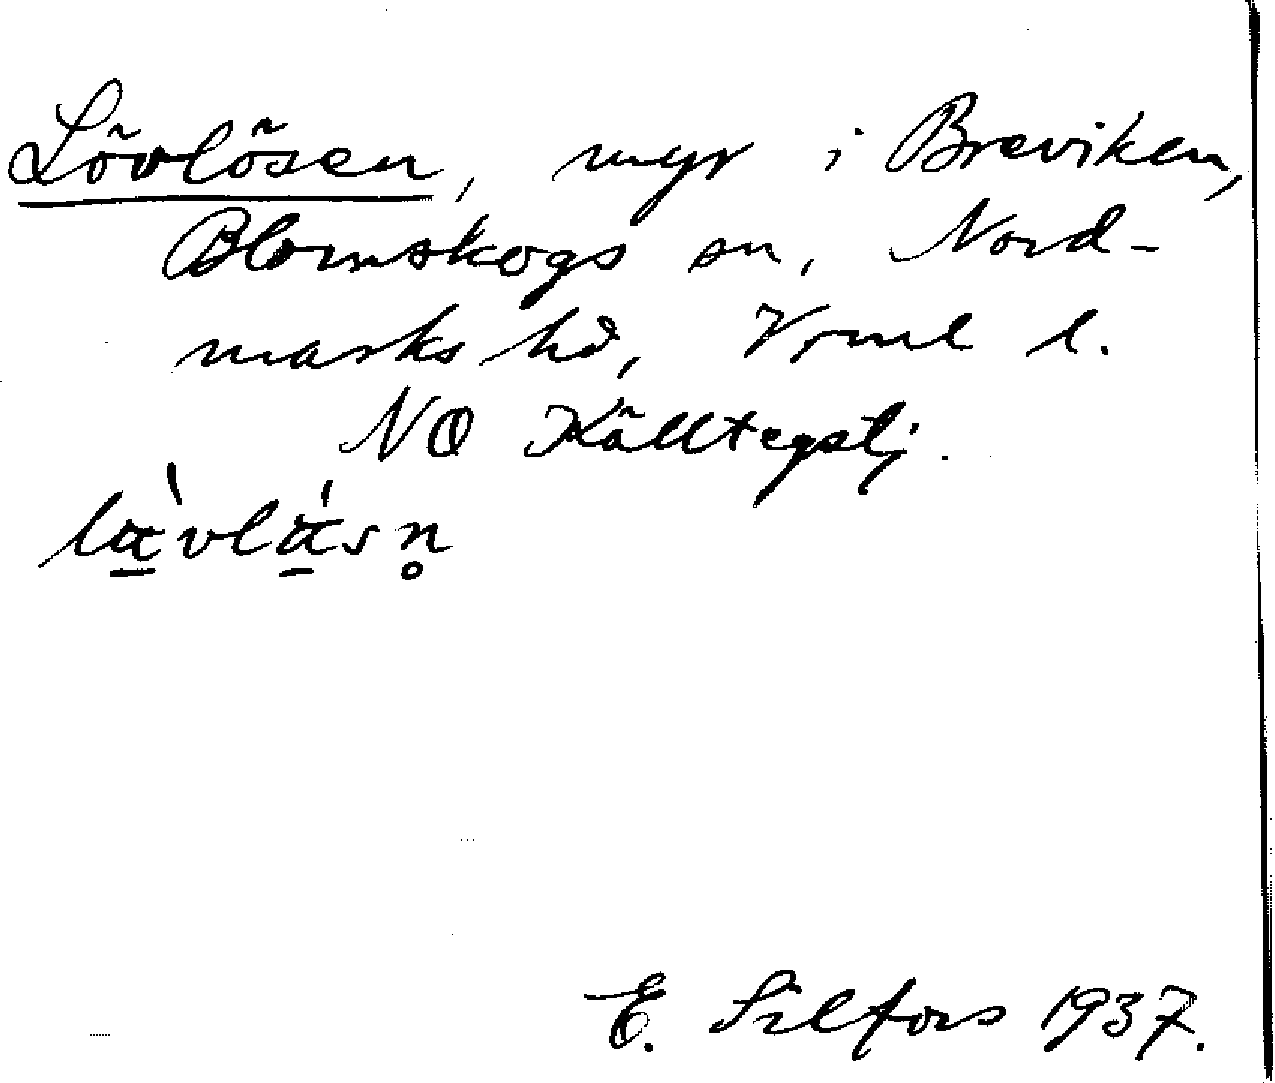 Lövlösen, myr i Breviken,
Blomskogs sn, Nord-
marks hd, Vrml l.
NO Källtegstj.
lὰ̱vlά̱sn̥
E. Silfors 1937.